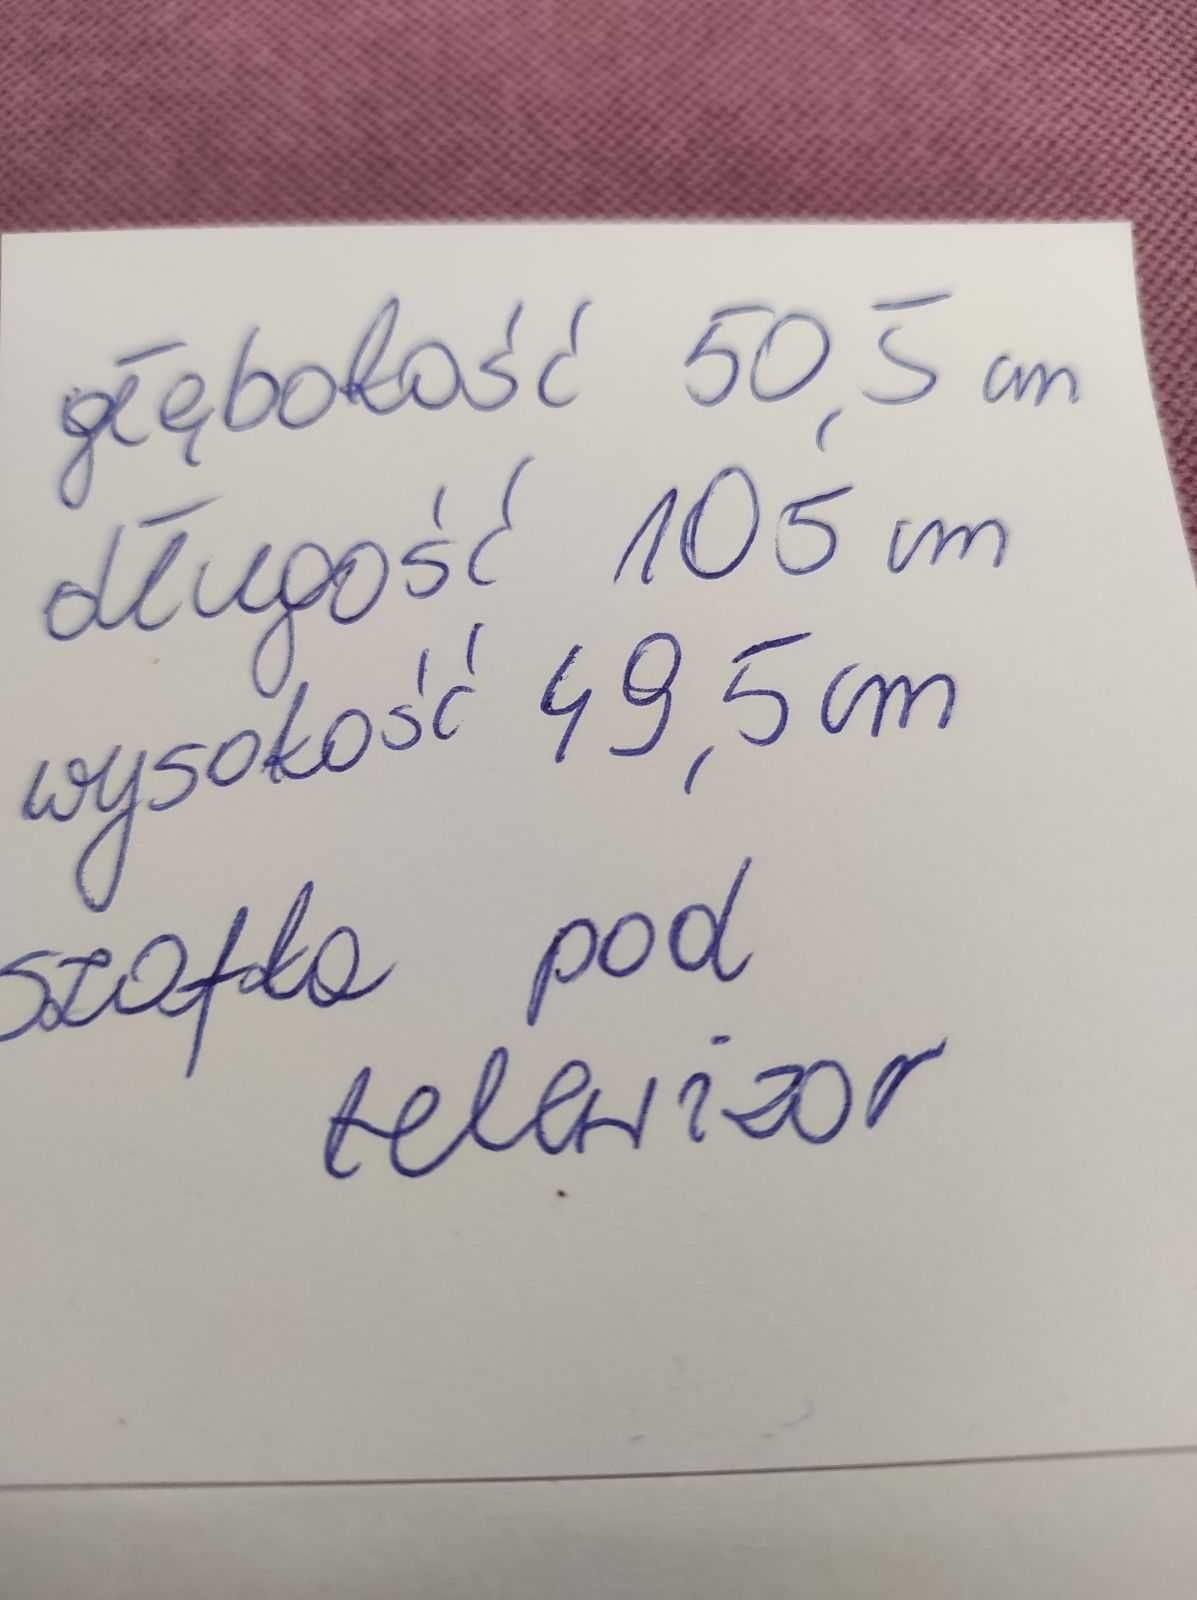 głębokość 50,5 cm
długość 105 cm
wysokość 49,5 cm
szafka pod
telewizor